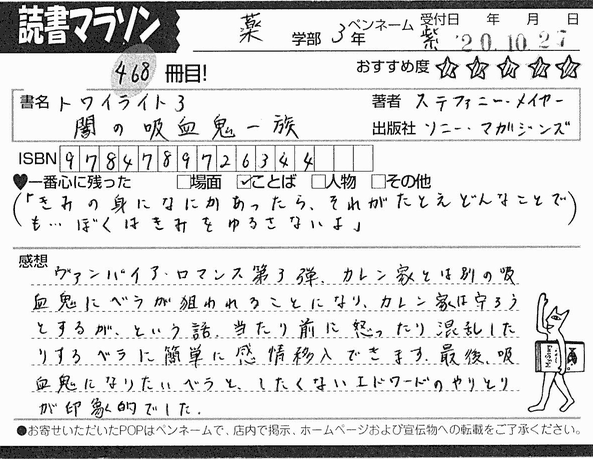 読書マラソン
薬 学部 3年 ペンネーム 紫 受付日 年 月 日
'20.10.27
468 冊目! おすすめ度 ☆☆☆☆☆
書名 トワイライト3 著者 ステファニー・メイヤー
闇の吸血鬼一族 出版社 ソニー・マガジンズ
ISBN 9784789726344
♥一番心に残った □場面 ☑ことば □人物 □その他
(「きみの身になにかあったら、それがたとえどんなことで
も…ぼくはきみをゆるさないよ」)
感想
ヴァンパイア・ロマンス第3弾、カレン家とは別の吸
血鬼にベラが狙われることになり、カレン家は守ろう
とするが、という話。当たり前に怒ったり混乱した
りするベラに簡単に感情移入できます。最後、吸
血鬼になりたいベラと、したくないエドワードのやりとり
が印象的でした.
●お寄せいただいたPOPはペンネームで、店内で掲示、ホームページおよび宣伝物への転載をご了承ください。